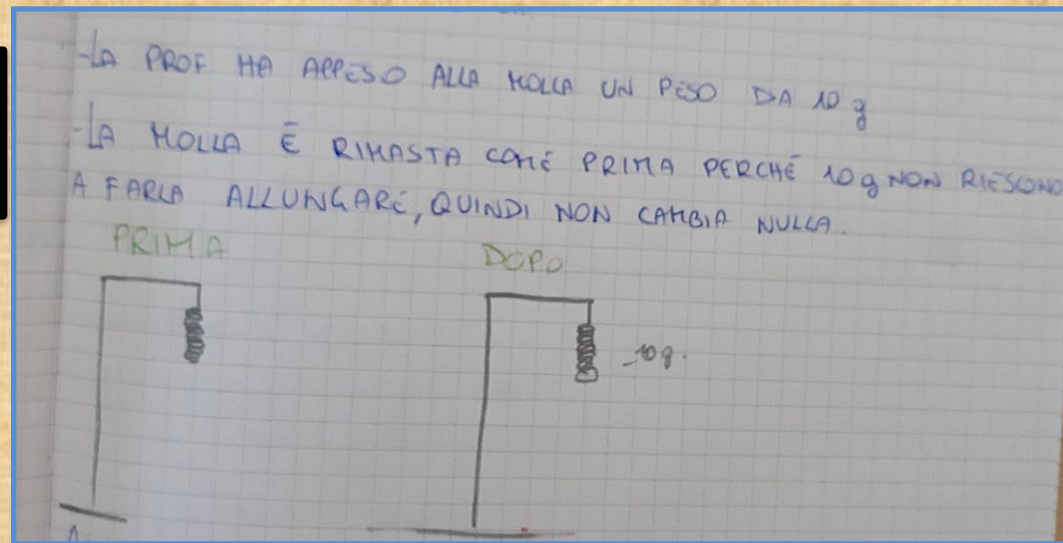 -LA PROF HA APPESO ALLA MOLLA UN PESO DA 10 g
-LA MOLLA È RIMASTA COME PRIMA PERCHÉ 10 g NON RIESCONO
A FARLA ALLUNGARE, QUINDI NON CAMBIA NULLA.
PRIMA
DOPO
10 g.